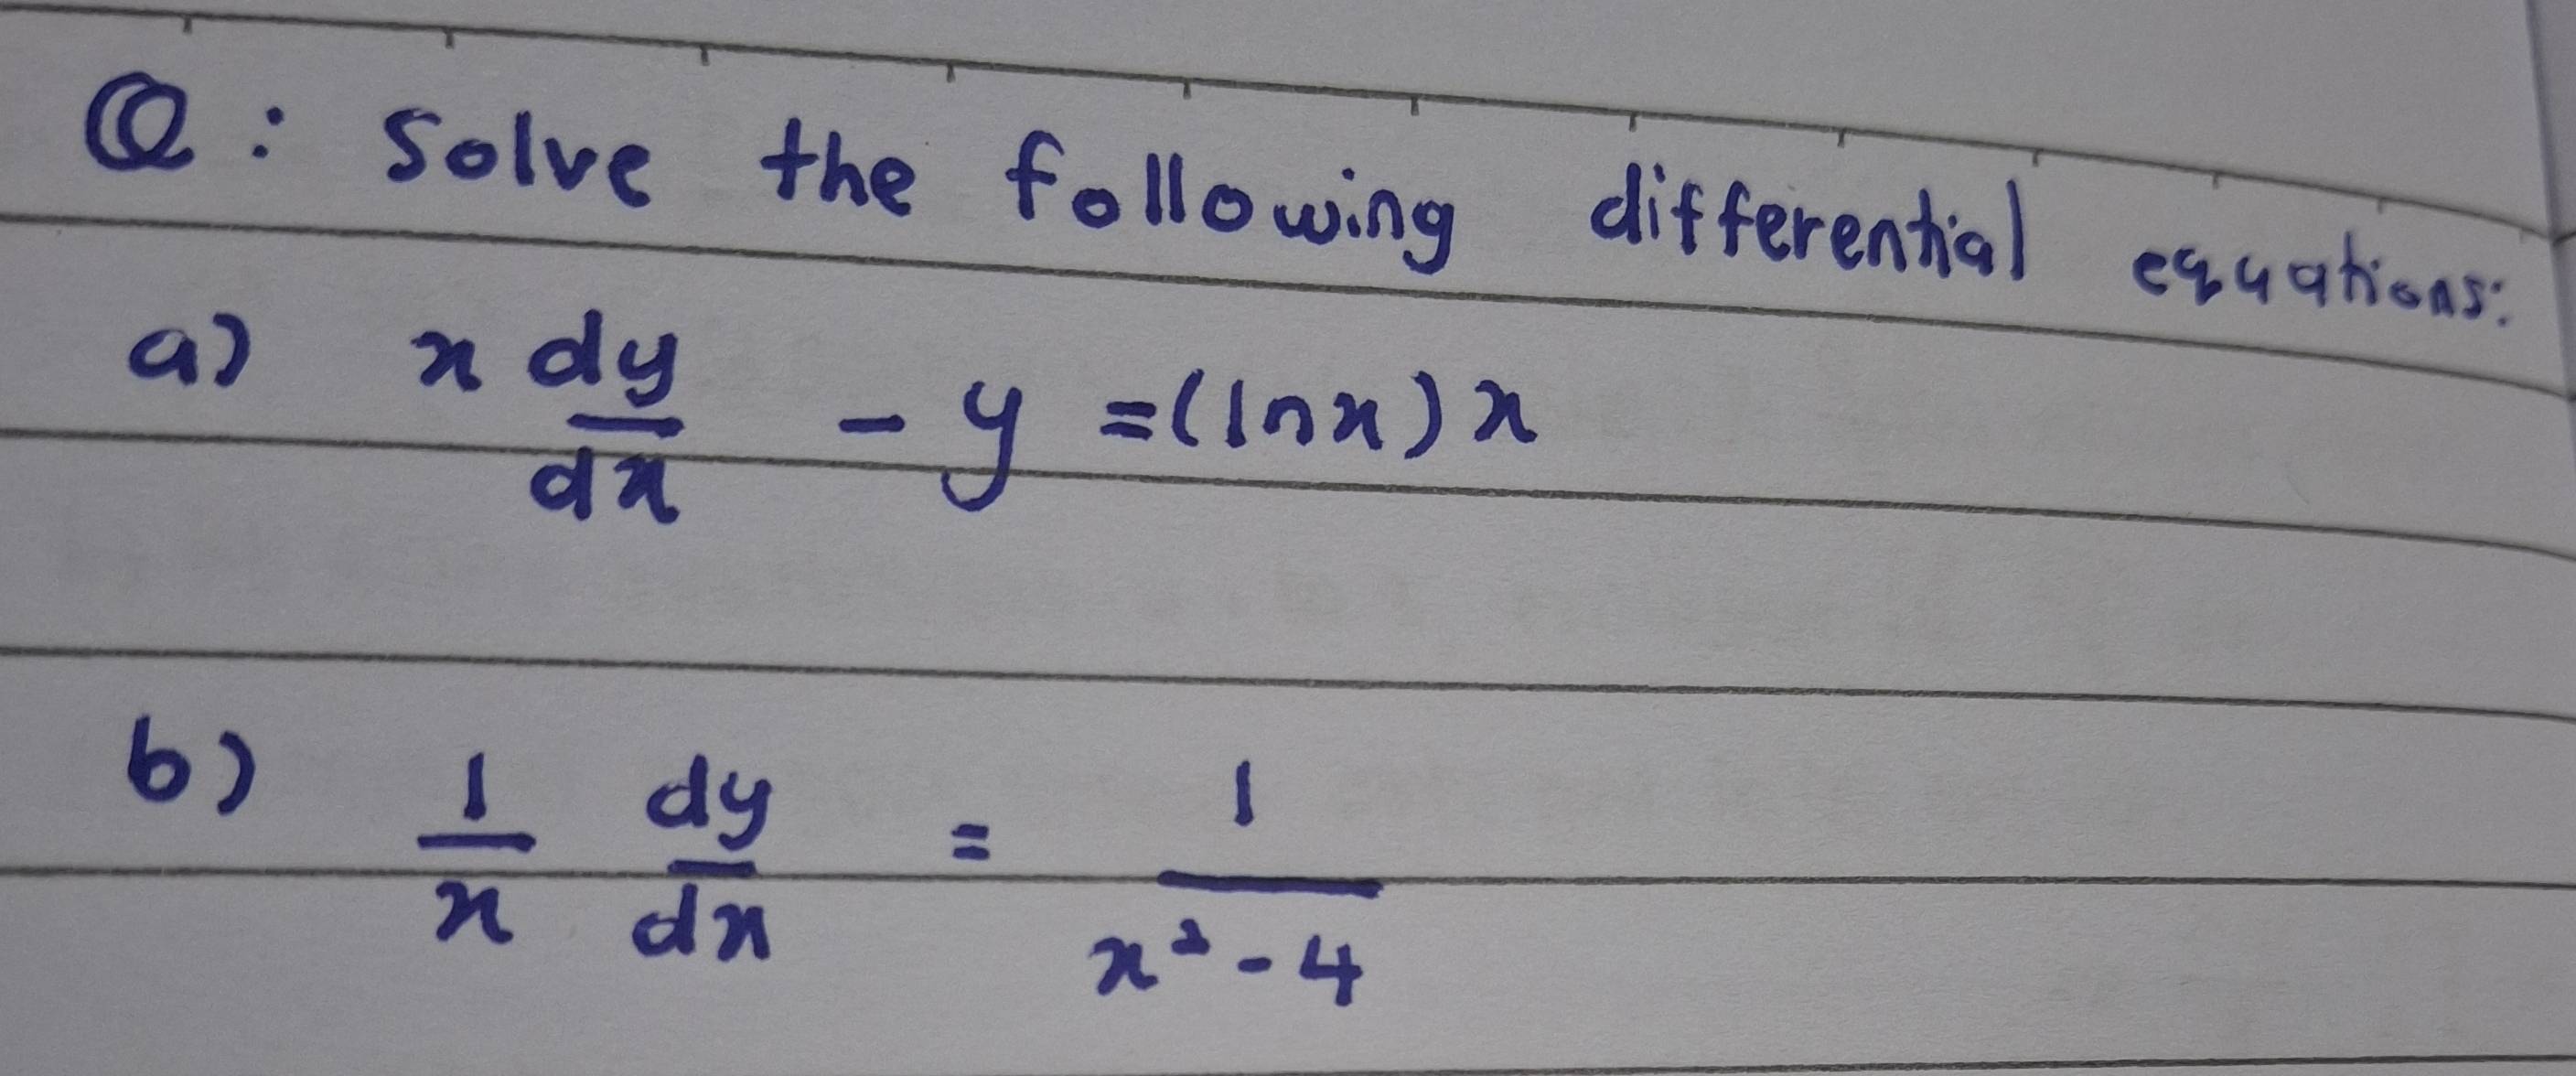 Q: Solve the following differential equations:
a) x dy/dx - y = (lnx) x
b) 1/x dy/dx = 1/(x² - 4)